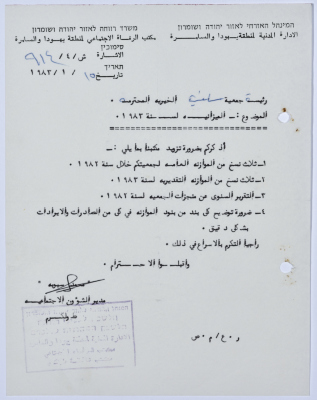 המינהל האזרחי לאזור יהודה ושומרון
الادارة المدنية لمنطقة يهودا والسامرة
משרד רווחה לאזור יהודה ושומרון
مكتب الرفاه الاجتماعي لمنطقة يهودا والسامرة
סימוכין
الاشارة ش/٤/٩١٤
תאריך
تاريخ ١٥/١/١٩٨٣
رئيسة جمعية الخيريه المحترمة٠
الموضوع: الميزانيه لسنة ١٩٨٣
اذكركم بضرورة تزويد مكتبنا بما يلي:
١- ثلاث نسخ من الموازنه الخاصه لجمعيتكم خلال سنة ١٩٨٢
٢- ثلاث نسخ من الموازنه التقديريه لسنة ١٩٨٣٠
٣- التقرير السنوي عن منجزات الجمعيه لسنة ١٩٨٢٠
٤- ضرورة توضيح كل بند من بنود الموازنه في كل من الصادرات والايرادات
بشكل دقيق٠
راجية التكرم بالاسراع في ذلك٠
واقبلوا الاحترام٠
مدير الشؤون الاجتماعيه
ر٠ع/م٠ص